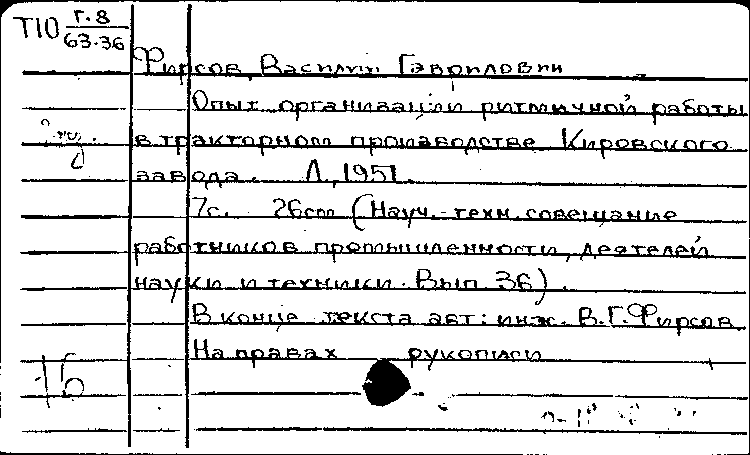 Т10 Г.8
63-36
Фирсов, Василий Гаврилович
Опыт организации ритмичной работы
в тракторном производстве Кировского
завода. Л, 1951.
7с. 26см (Науч.-техн. совещание
работников промышленности, деятелей
науки и техники. Вып 36).
В конце текста авт: инж. В.Г.Фирсов
На правах рукописи
16